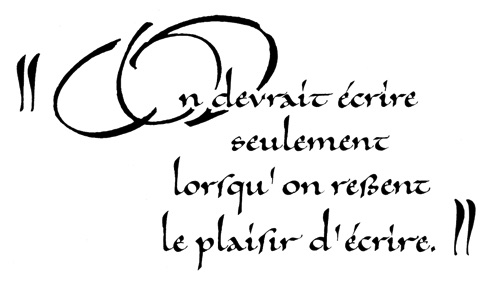 " On devrait écrire
seulement
lorsqu'on reßent
le plaiſir d'écrire. "